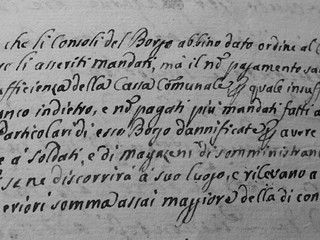 che li Consoli del Borgo abbino dato ordine al C
li asseriti mandati, ma il n.º pagamento sa
ufficienza della Cassa Comunale quale insuff
anco indietro, e nº pagati più mandati fatti a
Particolari di esso Borgo dannificate avere
e à soldati, e di magazeni di somministran
se ne discorrirà à suo luogo, e rilevano a
eriori somma assai maggiore della di con